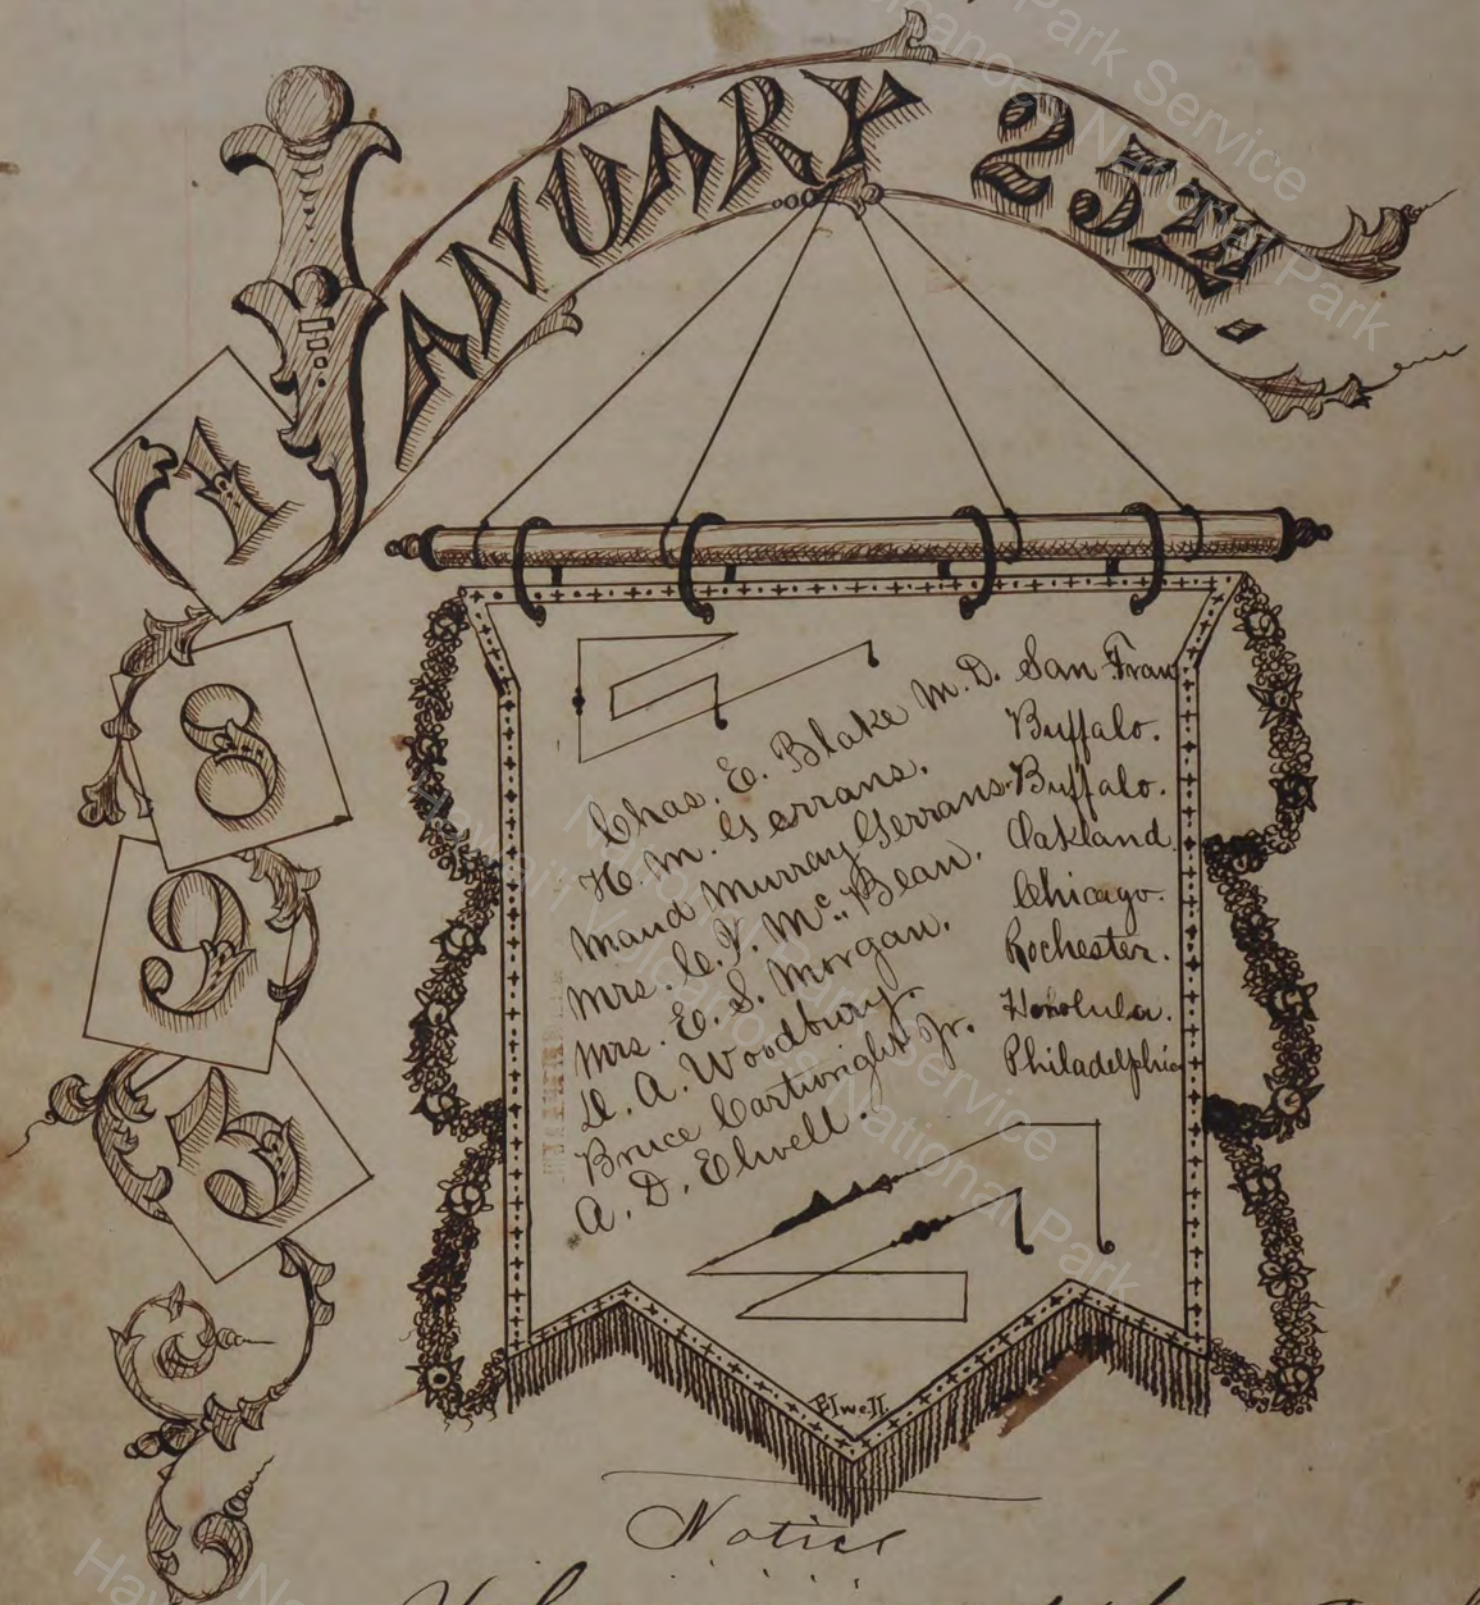 JANUARY 25TH.
1895
Chas. E. Blake M.D. San Fran
H. M. Gerrans. Buffalo.
Maud Murray Gerrans. Buffalo.
Mrs. C. Y. Mc. Bean. Oakland.
Mrs. E. S. Morgan. Chicago.
D. A. Woodbury. Rochester.
Bruce Cartwright Jr. Honolulu.
A. D. Elwell. Philadelphia
Elwell.
Notice
National Park Service
Hawai'i Volcanoes National Park